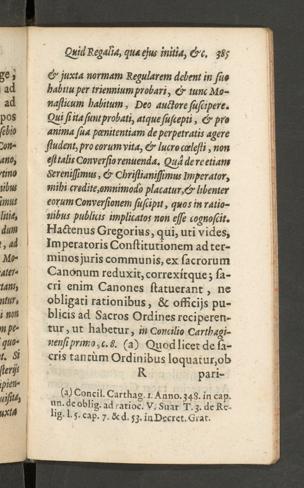 Quid Regalia, quæ ejus initia, &c. 385
& juxta normam Regularem debent in suo
habitu per triennium probari, & tunc Mo-
nasticum habitum, Deo auctore suscipere.
Qui si ita sunt probati, atque suscepti, & pro
anima sua pœnitentiam de perpetratis agere
student, pro eorum vita, & lucro cœlesti, non
est talis Conversio renuenda. Quâ de re etiam
Serenissimus, & Christianissimus Imperator,
mihi credite, omnimodo placatur, & libenter
eorum Conversionem suscipit, quos in ratio-
nibus publicis implicatos non esse cognoscit.
Hactenus Gregorius, qui, uti vides,
Imperatoris Constitutionem ad ter-
minos juris communis, ex sacrorum
Canonum reduxit, correxitque; sa-
cri enim Canones statuerant, ne
obligati rationibus, & officijs pu-
blicis ad Sacros Ordines reciperen-
tur, ut habetur, in Concilio Carthagi-
nensi primo, c. 8. (a) Quod licet de sa-
cris tantùm Ordinibus loquatur, ob
R pari-
(a) Concil. Carthag. 1. Anno. 348. in cap.
un. de oblig. ad ratioc. V. Suar T. 3. de Re-
lig. l. 5. cap. 7. & d. 53. in Decret. Grat.